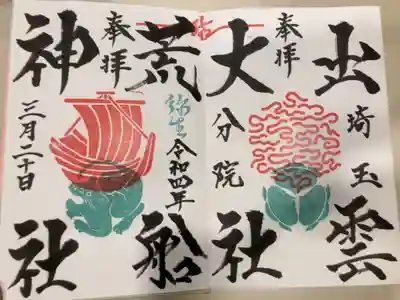 出雲
埼玉
奉拝
大社
分院
荒船
弥生
令和四年
奉拝
神社
三月二十日